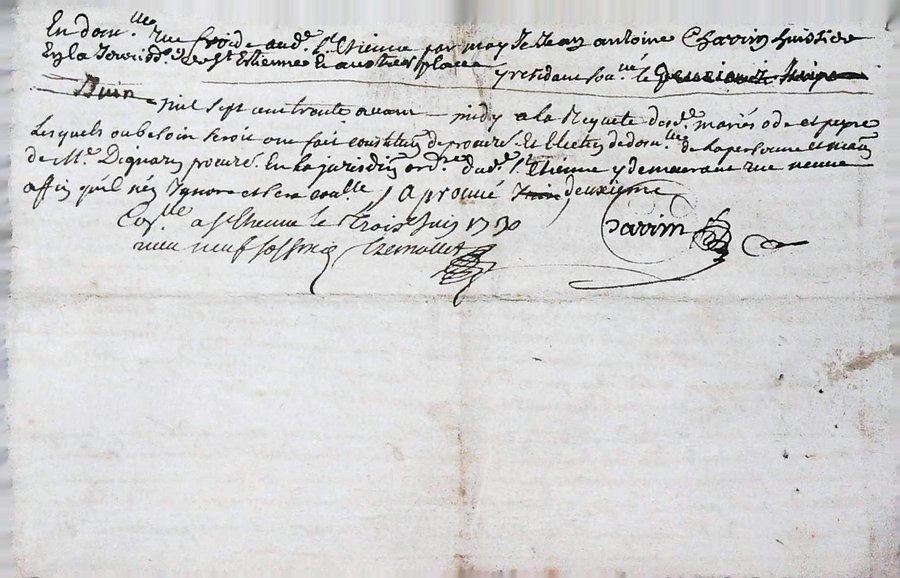 En dom.lle rue froide aud.t St Etienne par moy Je Jean antoine Chavin huissier
En la Jurisd.on de St Estienne & autres places y residant sou.né le
Juin mil sept cent trente avant midy a la Requete desd. mariés ode et peyre
Lesquels ou besoin seroit ont fait constitu.on de procure.r Et Election de dom.lle de la personne et maison
de Me Dignaron procure.r En la jurisd.on ord.re dud.t St Etienne y demeurant rue neuve
affin qu'il n'en Ignore et sera con.lle / aprouvé deuxieme Chavin
Con.lle a St Etienne le Trois.e Juin 1730
neuf sols